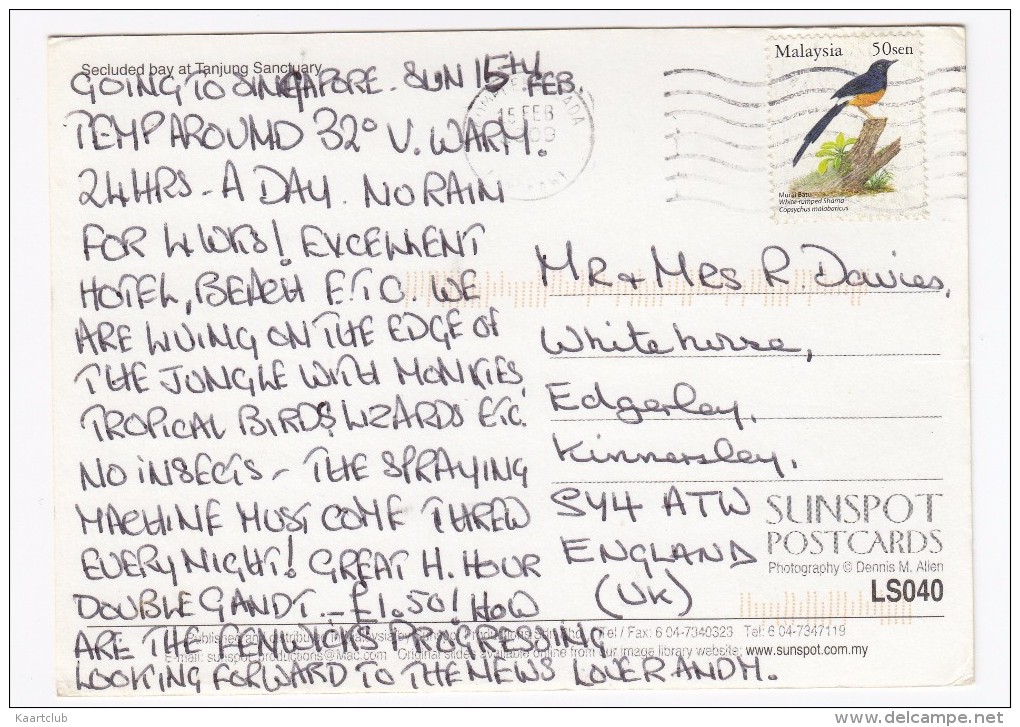 Secluded bay at Tanjung Sanctuary
GOING TO SINGAPORE. SUN 15TH FEB.
TEMP AROUND 32° V. WARM.
24HRS - A DAY. NO RAIN
FOR 4 WKS! EXCELLENT
HOTEL, BEACH E.T.C. WE
ARE LIVING ON THE EDGE OF
THE JUNGLE WITH MONKIES,
TROPICAL BIRDS, LIZARDS ETC.
NO INSECTS - THE SPRAYING
MACHINE MUST COME THREW
EVERY NIGHT! GREAT H. HOUR
DOUBLE G AND T. - £1.50! HOW
ARE THE PROGRESSING
LOOKING FORWARD TO THE NEWS LOVE R AND M.
Malaysia 50sen
Murai Batu
White-rumped Shama
Copsychus malabaricus
15 FEB
Mr & Mrs R. Davies,
Whitehouse,
Edgerley,
Kinnersley,
SY4 ATW
ENGLAND
(UK)
SUNSPOT
POSTCARDS
Photography © Dennis M. Allen
LS040
Published and distributed in Malaysia by Sunspot Productions Sdn Bhd Tel / Fax: 6 04-7340323 Tel: 6 04-7347119
E-mail: sunspot.productions@Mac.com Original slides available online from our image library website: www.sunspot.com.my
© Kaartclub
delcampe.net